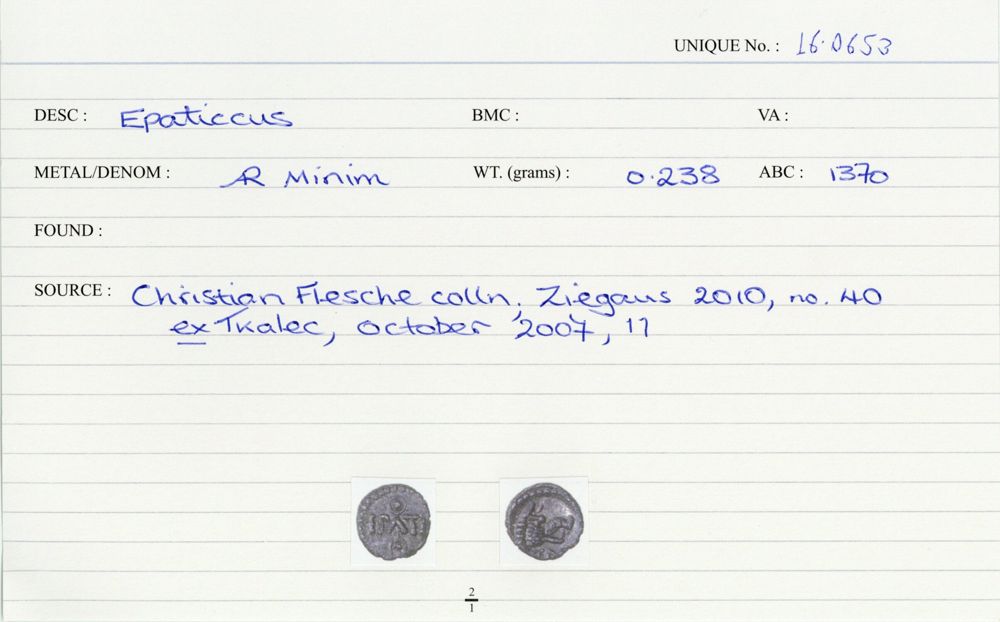 UNIQUE No. : 16.0653
DESC : Epaticcus BMC : VA :
METAL/DENOM : AR Minim WT. (grams) : 0.238 ABC : 1370
FOUND :
SOURCE : Christian Flesche colln, Ziegaus 2010, no. 40
ex Tkalec, October 2007, 11
EPATI
2
1